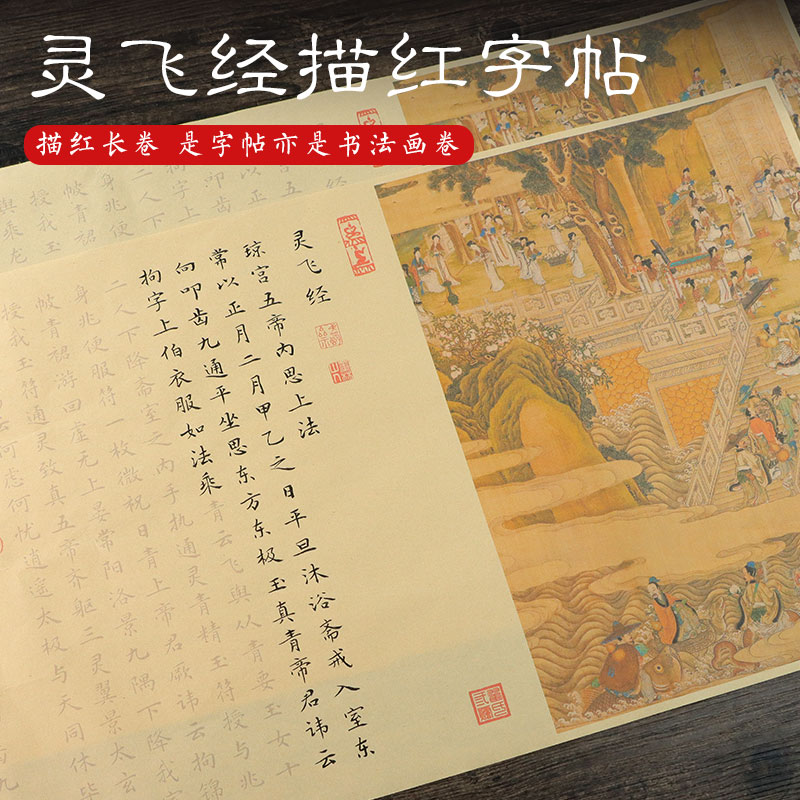 灵飞经描红字帖
描红长卷 是字帖亦是书法画卷
灵飞经
琼宫五帝内思上法
常以正月二月甲乙之日平旦沐浴斋戒入室东
向叩齿九通平坐思东方东极玉真青帝君讳云
拘字上伯衣服如法乘青云飞舆从青要玉女十
二人下降斋室之内手执通灵青精玉符授与兆
身兆便服符一枚微祝曰青上帝君厥讳云拘锦
帔青裙游回虚无上晏常阳洛景九隅下降我
授我玉符通灵致真五帝齐躯三灵翼景太玄
虑何忧逍遥太极与天同休毕
九
经
二人下
身兆便
帔青
授我玉
乘龙